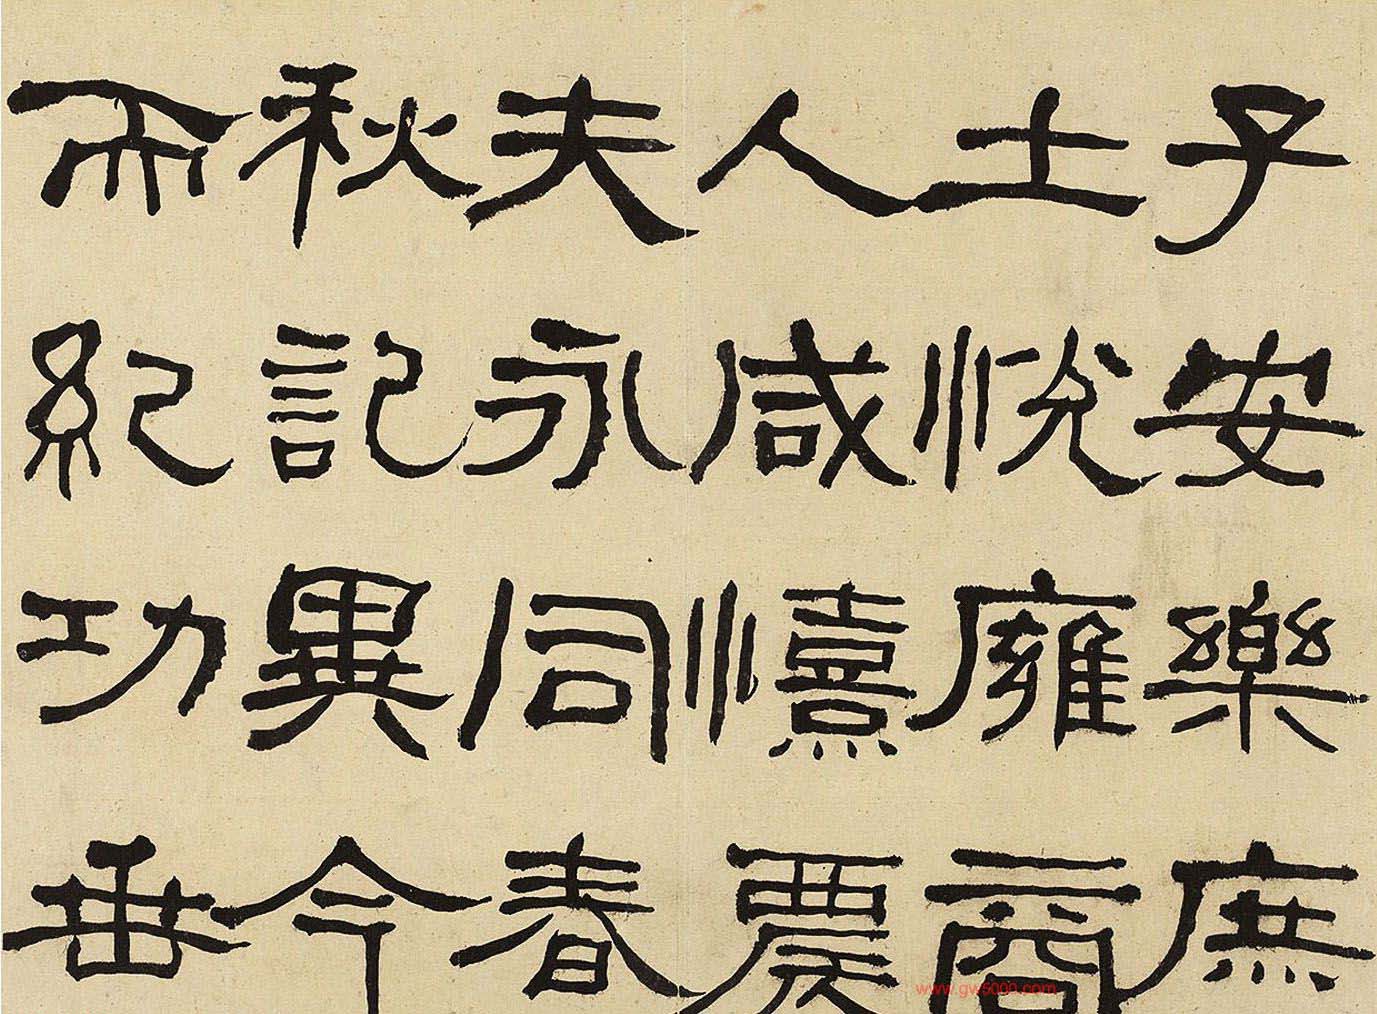 子安樂庶
士悅雍商
人咸憘農
夫永同春
秋記異今
而紀功垂
www.gw5000.com